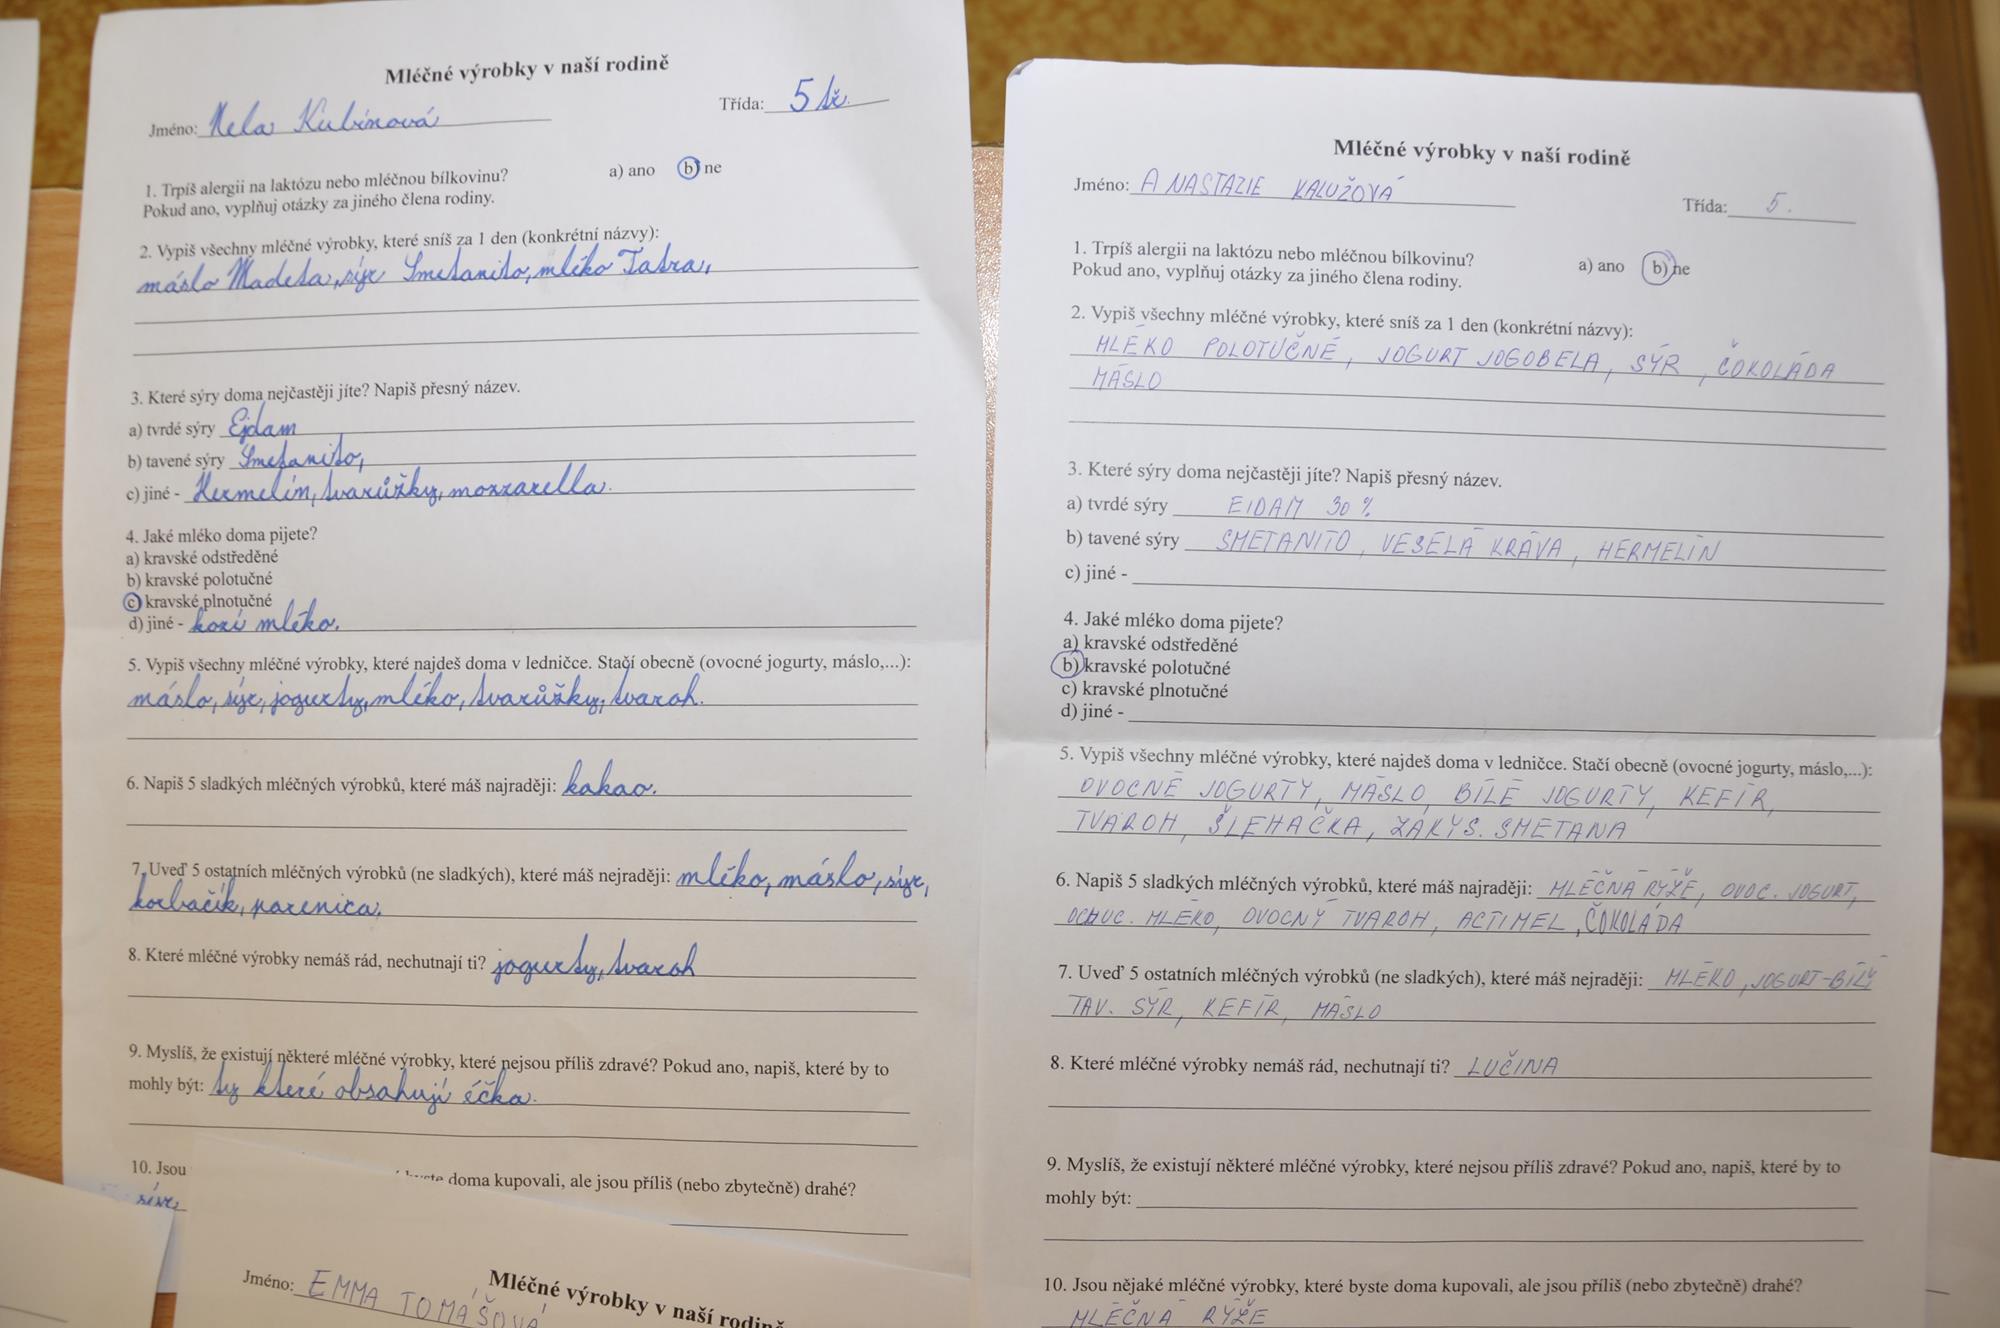 Mléčné výrobky v naší rodině
Jméno: Nela Kubínová Třída: 5 tř.
1. Trpíš alergii na laktózu nebo mléčnou bílkovinu? a) ano b) ne
Pokud ano, vyplňuj otázky za jiného člena rodiny.
2. Vypiš všechny mléčné výrobky, které sníš za 1 den (konkrétní názvy):
máslo Madeta, sýr Smetanito, mléko Tatra,
3. Které sýry doma nejčastěji jíte? Napiš přesný název.
a) tvrdé sýry Ejdam
b) tavené sýry Smetanito,
c) jiné - Hermelín, tvarůžky, mozzarella.
4. Jaké mléko doma pijete?
a) kravské odstředěné
b) kravské polotučné
c) kravské plnotučné
d) jiné - kozí mléko.
5. Vypiš všechny mléčné výrobky, které najdeš doma v ledničce. Stačí obecně (ovocné jogurty, máslo,...):
máslo, sýr, jogurty, mléko, tvarůžky, tvaroh.
6. Napiš 5 sladkých mléčných výrobků, které máš najraději: kakao.
7. Uveď 5 ostatních mléčných výrobků (ne sladkých), které máš nejraději: mléko, máslo, sýr,
korbáčik, parenica.
8. Které mléčné výrobky nemáš rád, nechutnají ti? jogurty, tvaroh
9. Myslíš, že existují některé mléčné výrobky, které nejsou příliš zdravé? Pokud ano, napiš, které by to
mohly být: ty které obsahují éčka.
10. Jsou doma kupovali, ale jsou příliš (nebo zbytečně) drahé?
Mléčné výrobky v naší rodině
Jméno: EMMA TOMÁŠOVÁ
Mléčné výrobky v naší rodině
Jméno: ANASTAZIE KALUŽOVÁ
Třída: 5.
1. Trpíš alergii na laktózu nebo mléčnou bílkovinu? a) ano b) ne
Pokud ano, vyplňuj otázky za jiného člena rodiny.
2. Vypiš všechny mléčné výrobky, které sníš za 1 den (konkrétní názvy):
MLÉKO POLOTUČNÉ, JOGURT JOGOBELA, SÝR, ČOKOLÁDA
MÁSLO
3. Které sýry doma nejčastěji jíte? Napiš přesný název.
a) tvrdé sýry EIDAM 30 %
b) tavené sýry SMETANITO, VESELÁ KRÁVA, HERMELÍN
c) jiné -
4. Jaké mléko doma pijete?
a) kravské odstředěné
b) kravské polotučné
c) kravské plnotučné
d) jiné -
5. Vypiš všechny mléčné výrobky, které najdeš doma v ledničce. Stačí obecně (ovocné jogurty, máslo,...):
OVOCNÉ JOGURTY, MÁSLO, BÍLÉ JOGURTY, KEFÍR,
TVAROH, ŠLEHAČKA, ZAKYS. SMETANA
6. Napiš 5 sladkých mléčných výrobků, které máš najraději: MLÉČNÁ RÝŽE, OVOC. JOGURT,
OCHUC. MLÉKO, OVOCNÝ TVAROH, ACTIMEL, ČOKOLÁDA
7. Uveď 5 ostatních mléčných výrobků (ne sladkých), které máš nejraději: MLÉKO, JOGURT-BÍLÝ
TAV. SÝR, KEFÍR, MÁSLO
8. Které mléčné výrobky nemáš rád, nechutnají ti? LUČINA
9. Myslíš, že existují některé mléčné výrobky, které nejsou příliš zdravé? Pokud ano, napiš, které by to
mohly být:
10. Jsou nějaké mléčné výrobky, které byste doma kupovali, ale jsou příliš (nebo zbytečně) drahé?
MLÉČNÁ RÝŽE